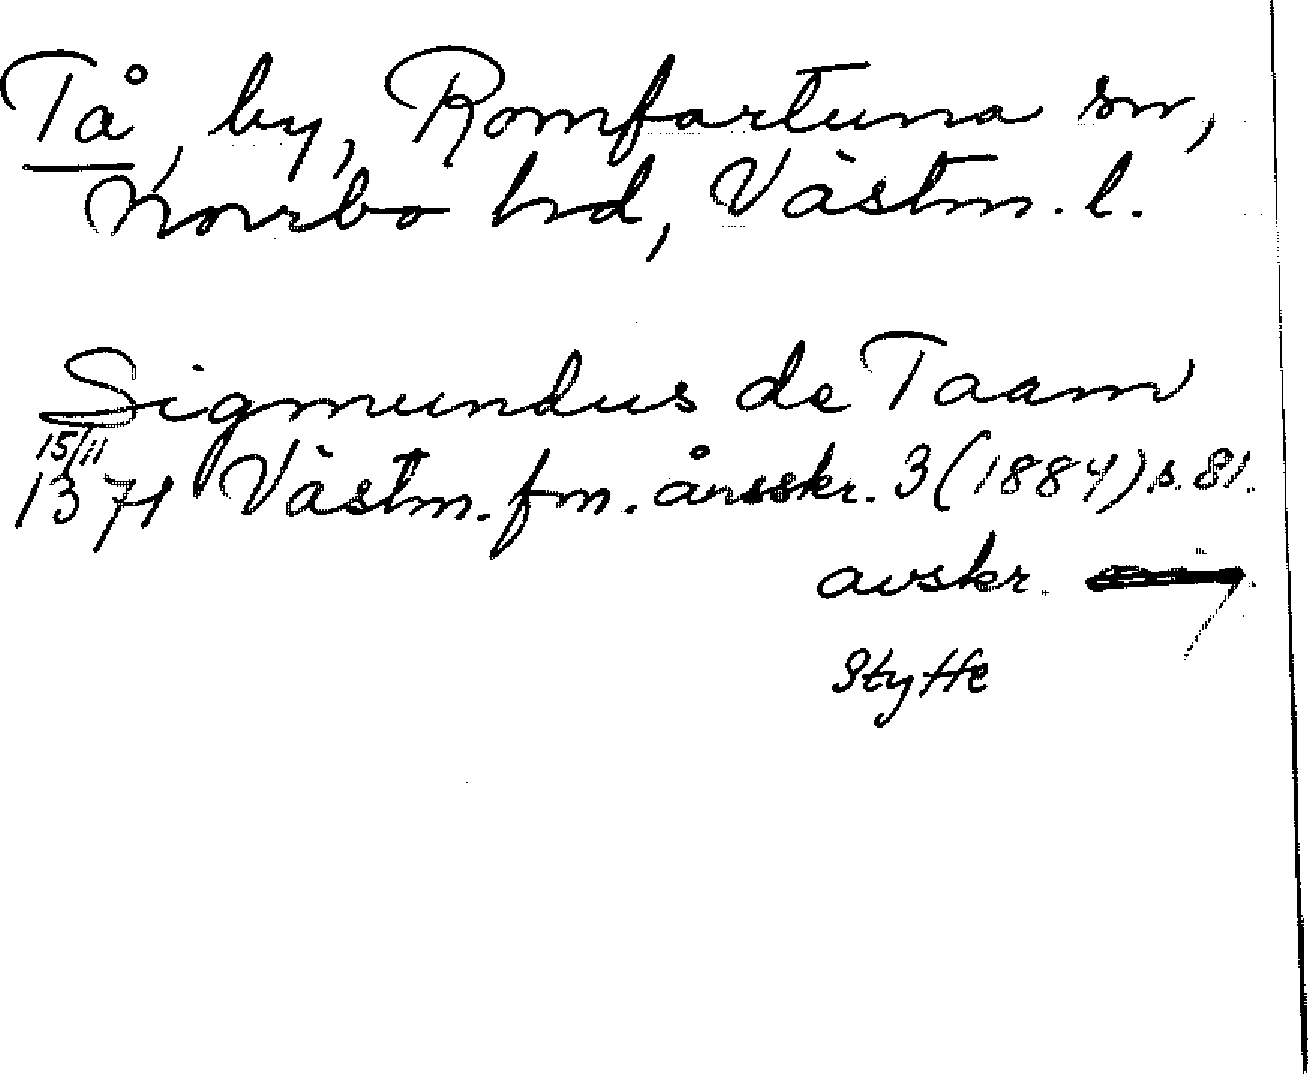 Tå, by, Romfartuna sn,
Norrbo hd, Västm. l.
Sigmundus de Taam
15/11
1371 Västm. fm. årsskr. 3 (1884) s. 81.
avskr.
Styffe